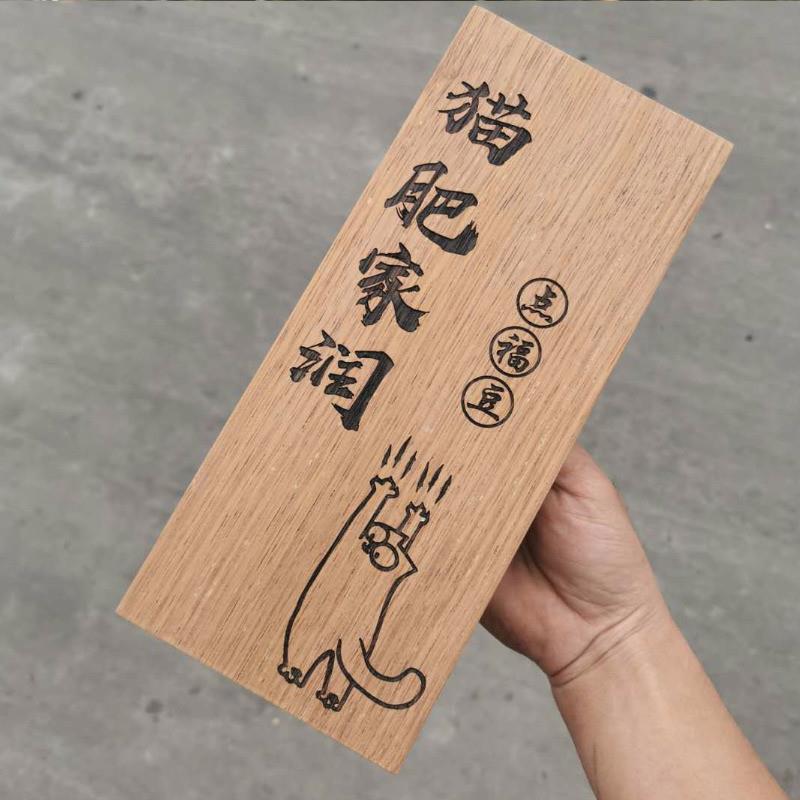 猫肥家润
点福豆